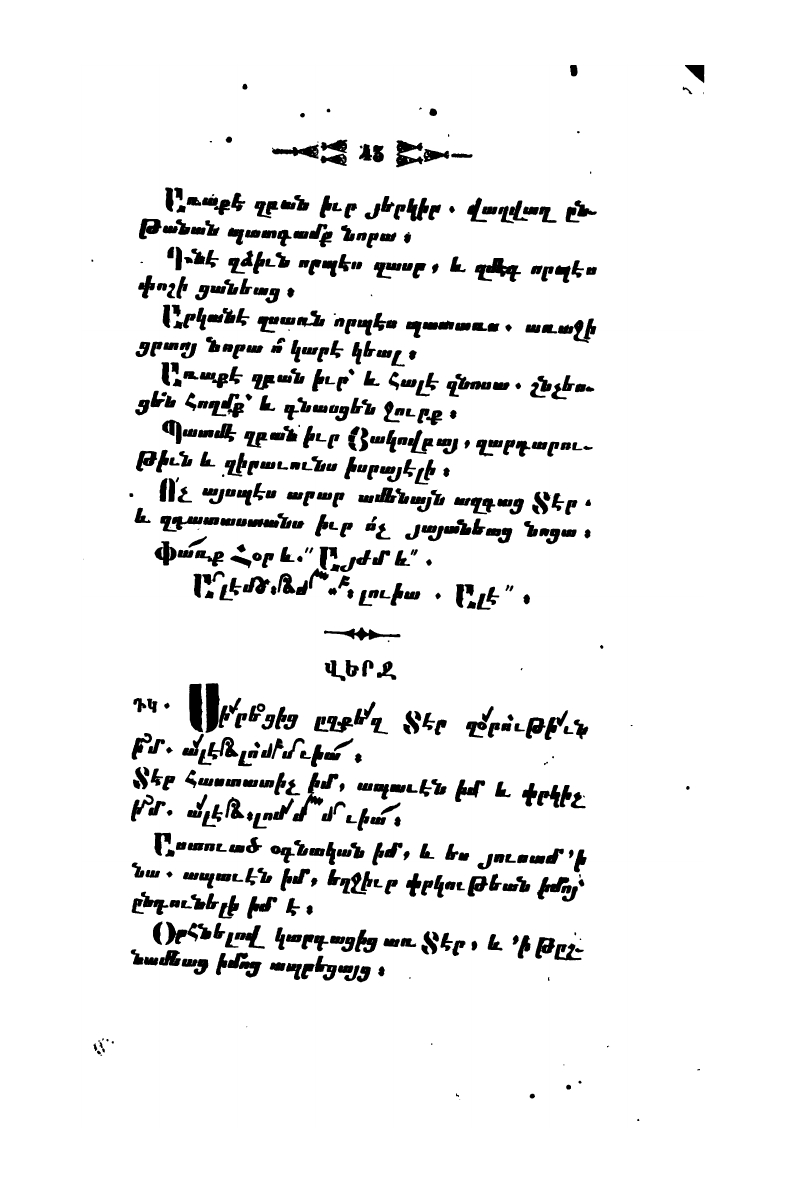 43
Առաքէ զբան իւր յերկիր. վաղվաղ ըն-
թանան պատգամք նորա։
Դնէ զձիւն որպէս զասր, և զմէգ որպէս
փոշի ցանեաց։
Արկանէ զսառն որպէս պատառս. առաջի
ցրտոյ նորա ո՞ կարէ կեալ։
Առաքէ զբան իւր՝ և հալէ զնոսա. շնչես-
ցեն հողմք՝ և գնասցեն ջուրք։
Պատմէ զբան իւր Յակովբայ, զարդարու-
թիւն և զիրաւունս իսրայէլի։
Ո՛չ այսպէս արար ամենայն ազգաց Տէր.
և զդատաստանս իւր ո՛չ յայտնեաց նոցա։
Փառք Հօր և. Այժմ և.
լուիա. Ալէ։
ՎԵՐՋ
ԴԿ. Սիրեցից ըզքեզ Տէր զօրութիւն
իմ.
Տէր հաստատիչ իմ, ապաւէն իմ և փրկիչ
իմ.
Աստուած օգնական իմ, և ես յուսամ ՚ի
նա. ապաւէն իմ, եղջիւր փրկութեան իմոյ՝
ընդունելի իմ է։
Օրհնելով կարդացից առ Տէր, և ՚ի թըշ-
նամեաց իմոց ապրեցայց։